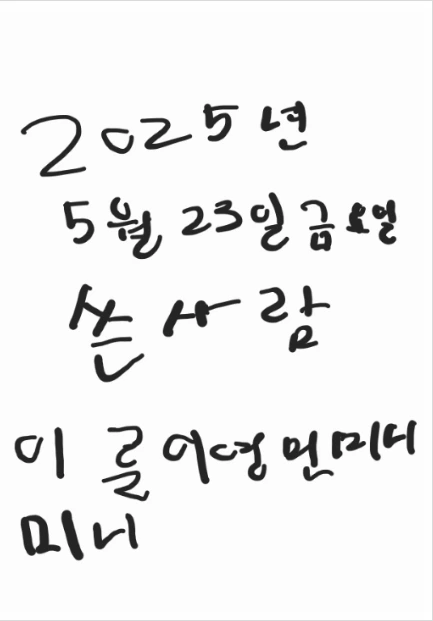 2025년
5월 23일 금요일
쓴 사람
이 글 어영 먼미디
미니